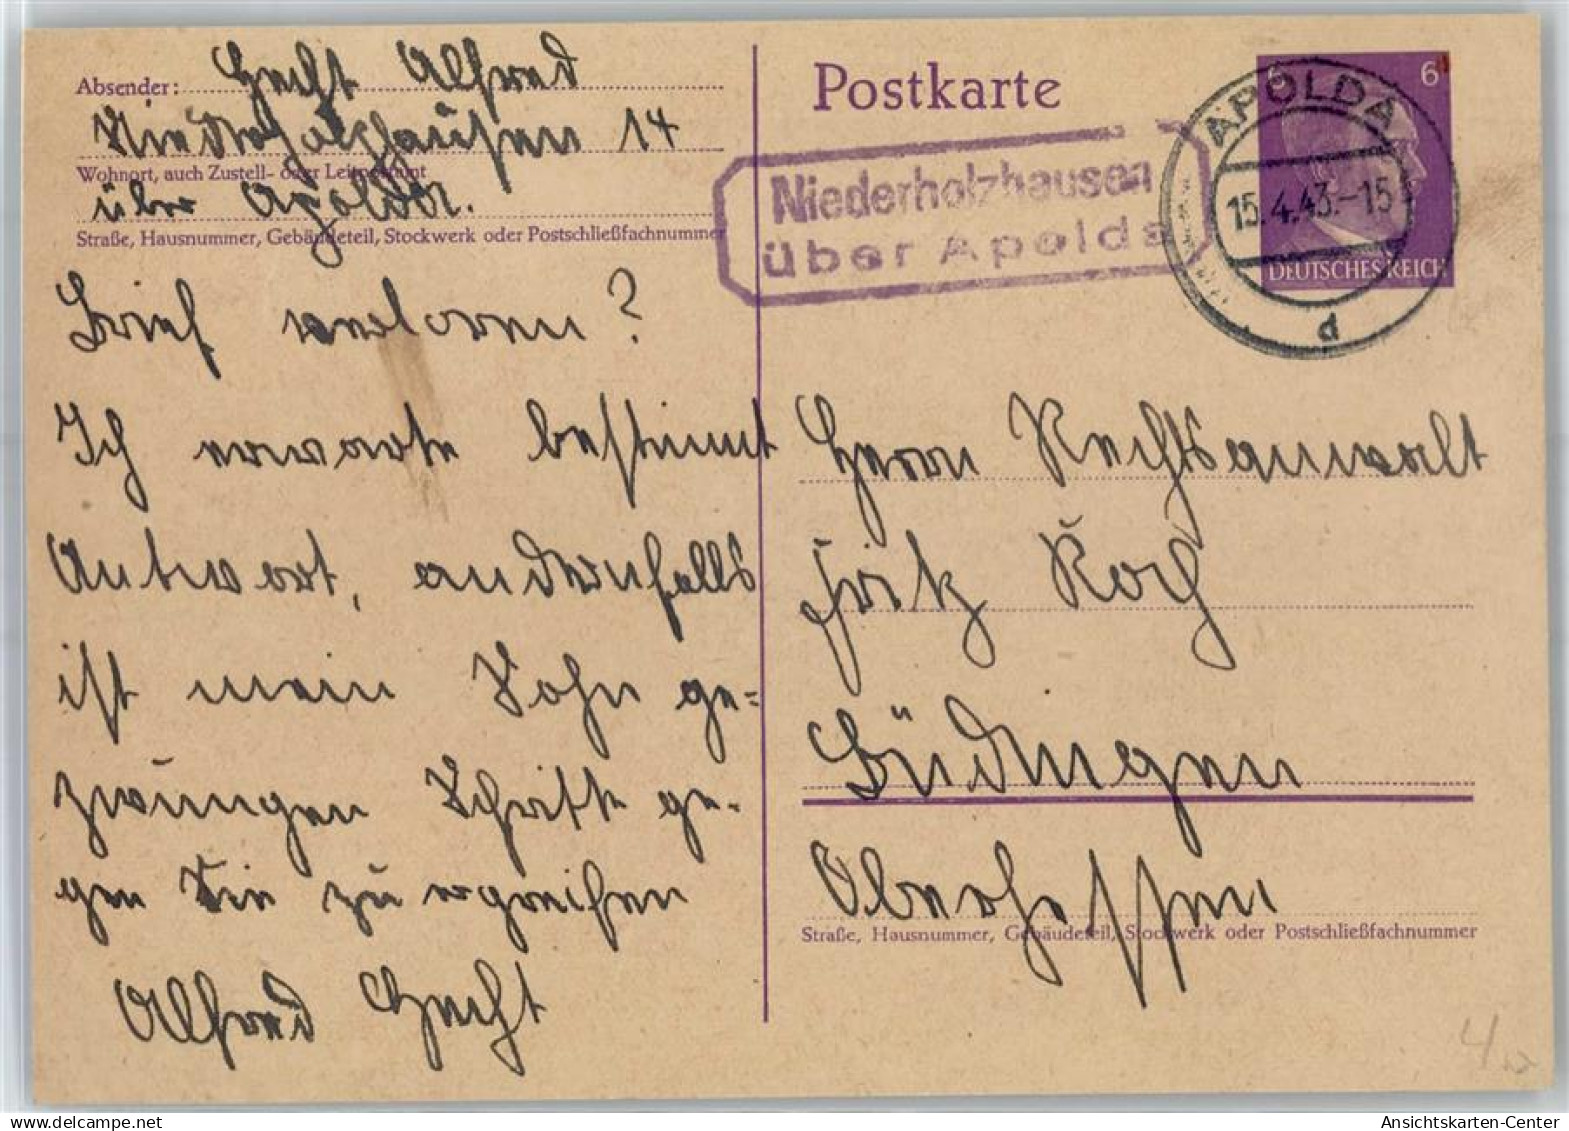 Absender: Hecht Alfred
Niederholzhausen 14
Wohnort, auch Zustell- oder Leitpostamt
über Apolda.
Straße, Hausnummer, Gebäudeteil, Stockwerk oder Postschließfachnummer
Postkarte
Niederholzhausen
über Apolda
APOLDA
15.4.43.-15
d
6
6
DEUTSCHES REICH
Brief verloren?
Ich erwarte bestimmt
Antwort, andernfalls
ist mein Sohn ge=
zwungen Schritte ge-
gen Sie zu ergreifen
Alfred Hecht
Herrn Rechtsanwalt
Fritz Koch
Büdingen
Oberhessen
Straße, Hausnummer, Gebäudeteil, Stockwerk oder Postschließfachnummer
4
Ansichtskarten-Center